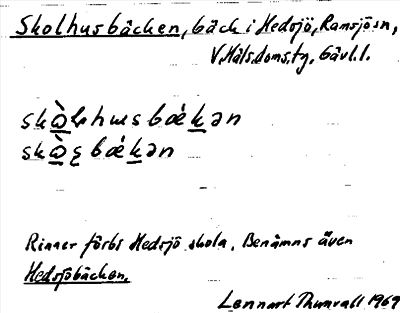 Skolhusbäcken, bäck i Hedsjö, Ramsjö sn,
V. Häls. doms. tg, Gävl. l.
Rinner förbi Hedsjö skola. Benämns även
Hedsjöbäcken.
Lennart Thunvall 1969